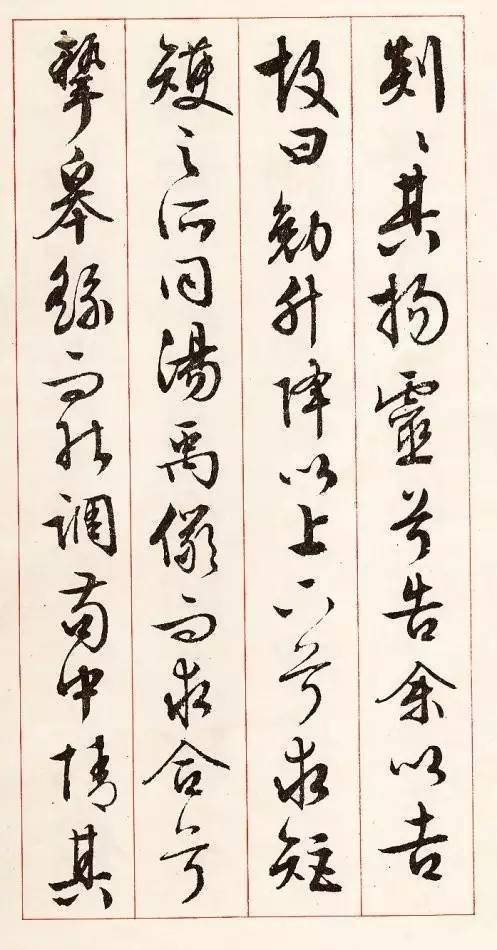 剡々其揚靈兮告余以吉
故曰勉升降以上下兮求矩
矱之所同湯禹儼而求合兮
摯皋繇而能調苟中情其